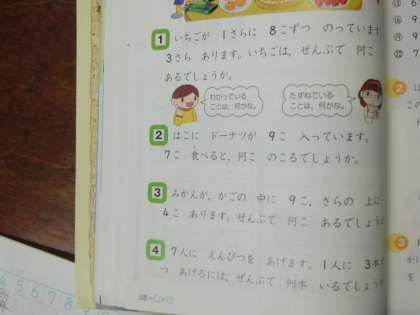 1 いちごが 1さらに 8こずつ のっています
3さら あります。いちごは、ぜんぶで 何こ
あるでしょうか。
わかっている
ことは、何かな。
たずねている
ことは、何かな。
2 はこに ドーナツが 9こ 入っています。
7こ 食べると、何こ のこるでしょうか。
3 みかんが、かごの 中に 9こ、さらの 上に
4こ あります。ぜんぶで 何こ あるでしょうか
4 7人に えんぴつを あげます。1人に 3本
つ あげるには、ぜんぶで 何本 いるでしょう
4 5 6 7 8
2
3